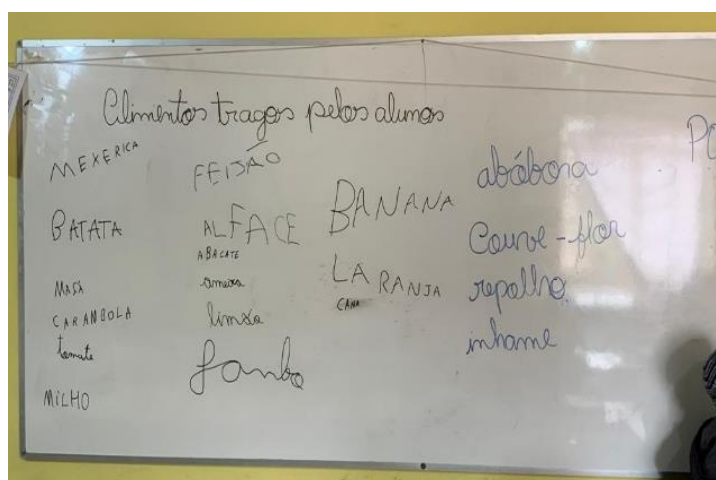 Alimentos tragos pelos alunos
MEXERICA
BATATA
MASÃ
CARAMBOLA
tomate
MILHO
FEIJÃO
ALFACE
ABACATE
ameixa
limão
BANANA
LARANJA
CANA
abóbora
Couve-flor
repolho
inhame
PO